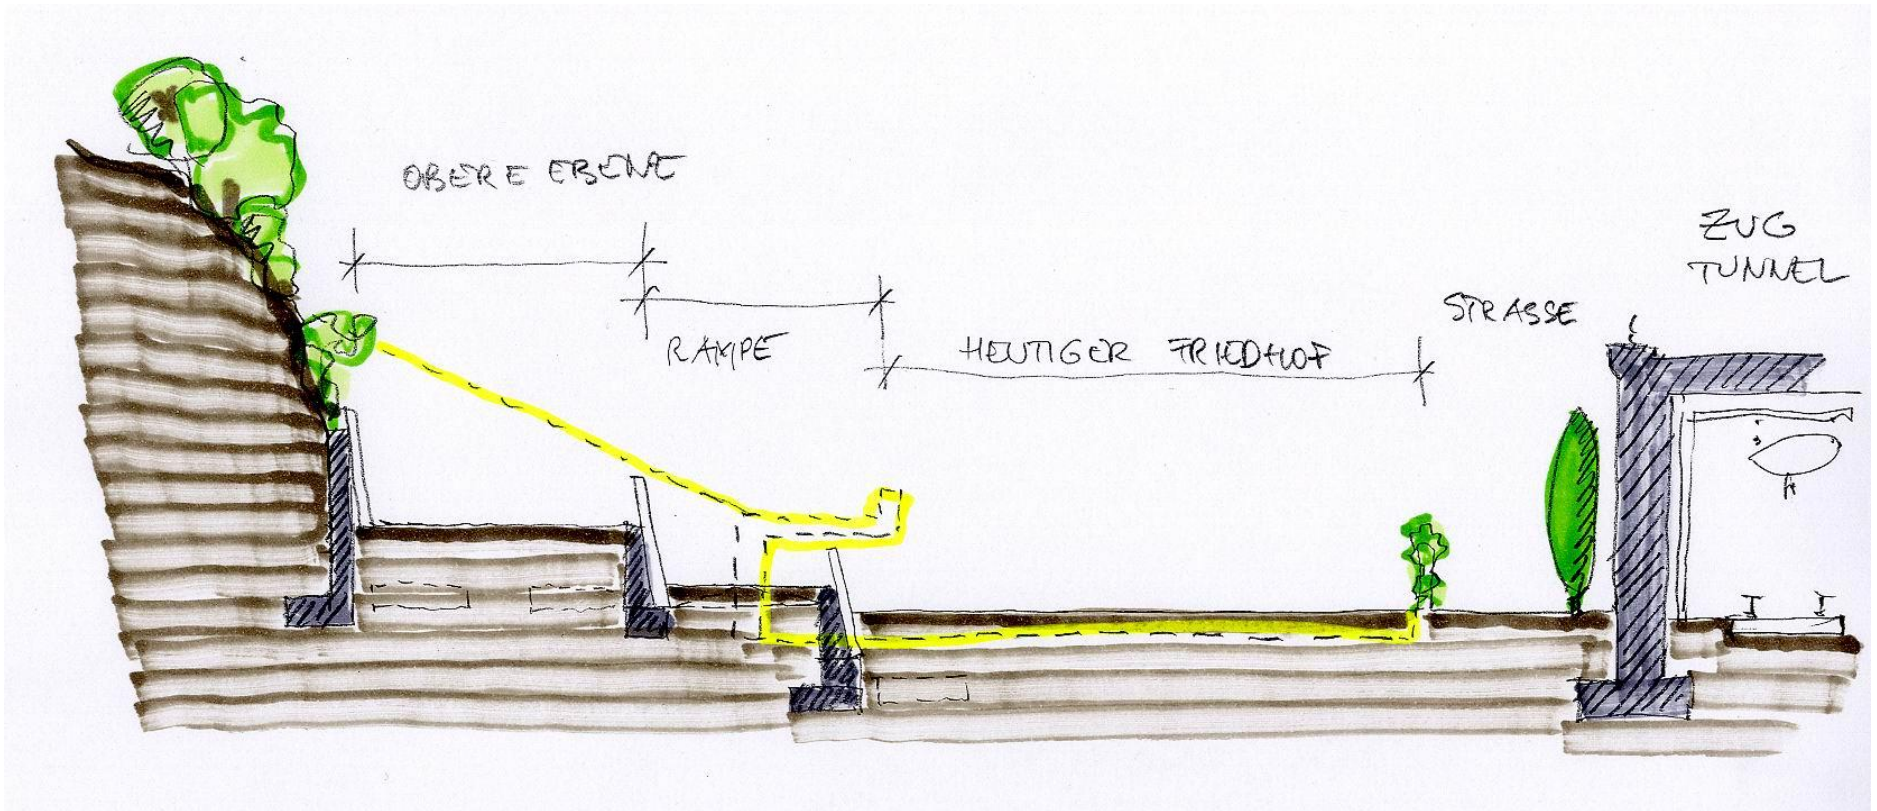 OBERE EBENE
RAMPE
HEUTIGER FRIEDHOF
STRASSE
ZUG
TUNNEL